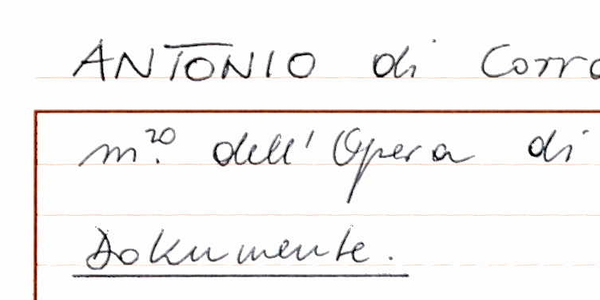 ANTONIO di Corra
m²⁰. dell' Opera di
Dokumente.